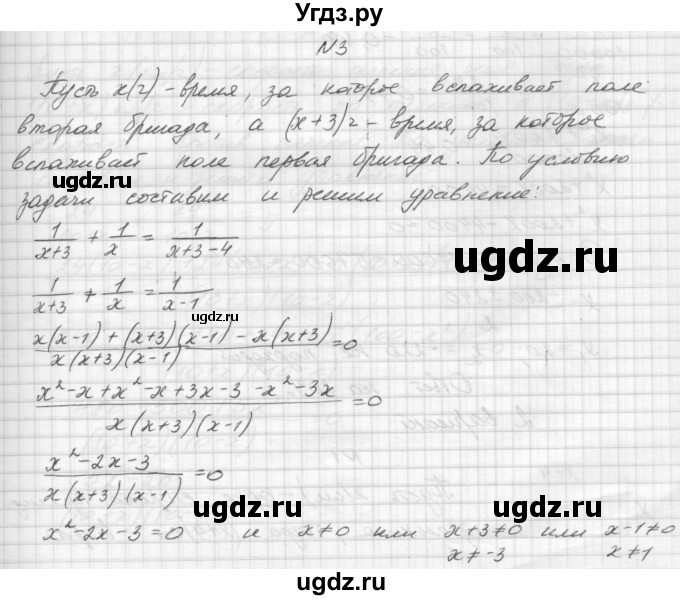 Угдз.ру
N3
Пусть x(ч) - время, за которое вспахивает поле
вторая бригада, а (x+3)ч - время, за которое
вспахивает поле первая бригада. По условию
угдз.ру
задачи составим и решим уравнение:
1/(x+3) + 1/x = 1/(x+3-4)
угдз.ру
1/(x+3) + 1/x = 1/(x-1)
угдз.ру
(x(x-1)+(x+3)(x-1)-x(x+3))/(x(x+3)(x-1)) =0
(x²-x+x²-x+3x-3-x²-3x)/(x(x+3)(x-1)) =0
(x²-2x-3)/(x(x+3)(x-1)) =0
угдз.ру
x²-2x-3=0 и x≠0 или x+3≠0 или x-1≠0
x≠-3 x≠1
угдз.ру